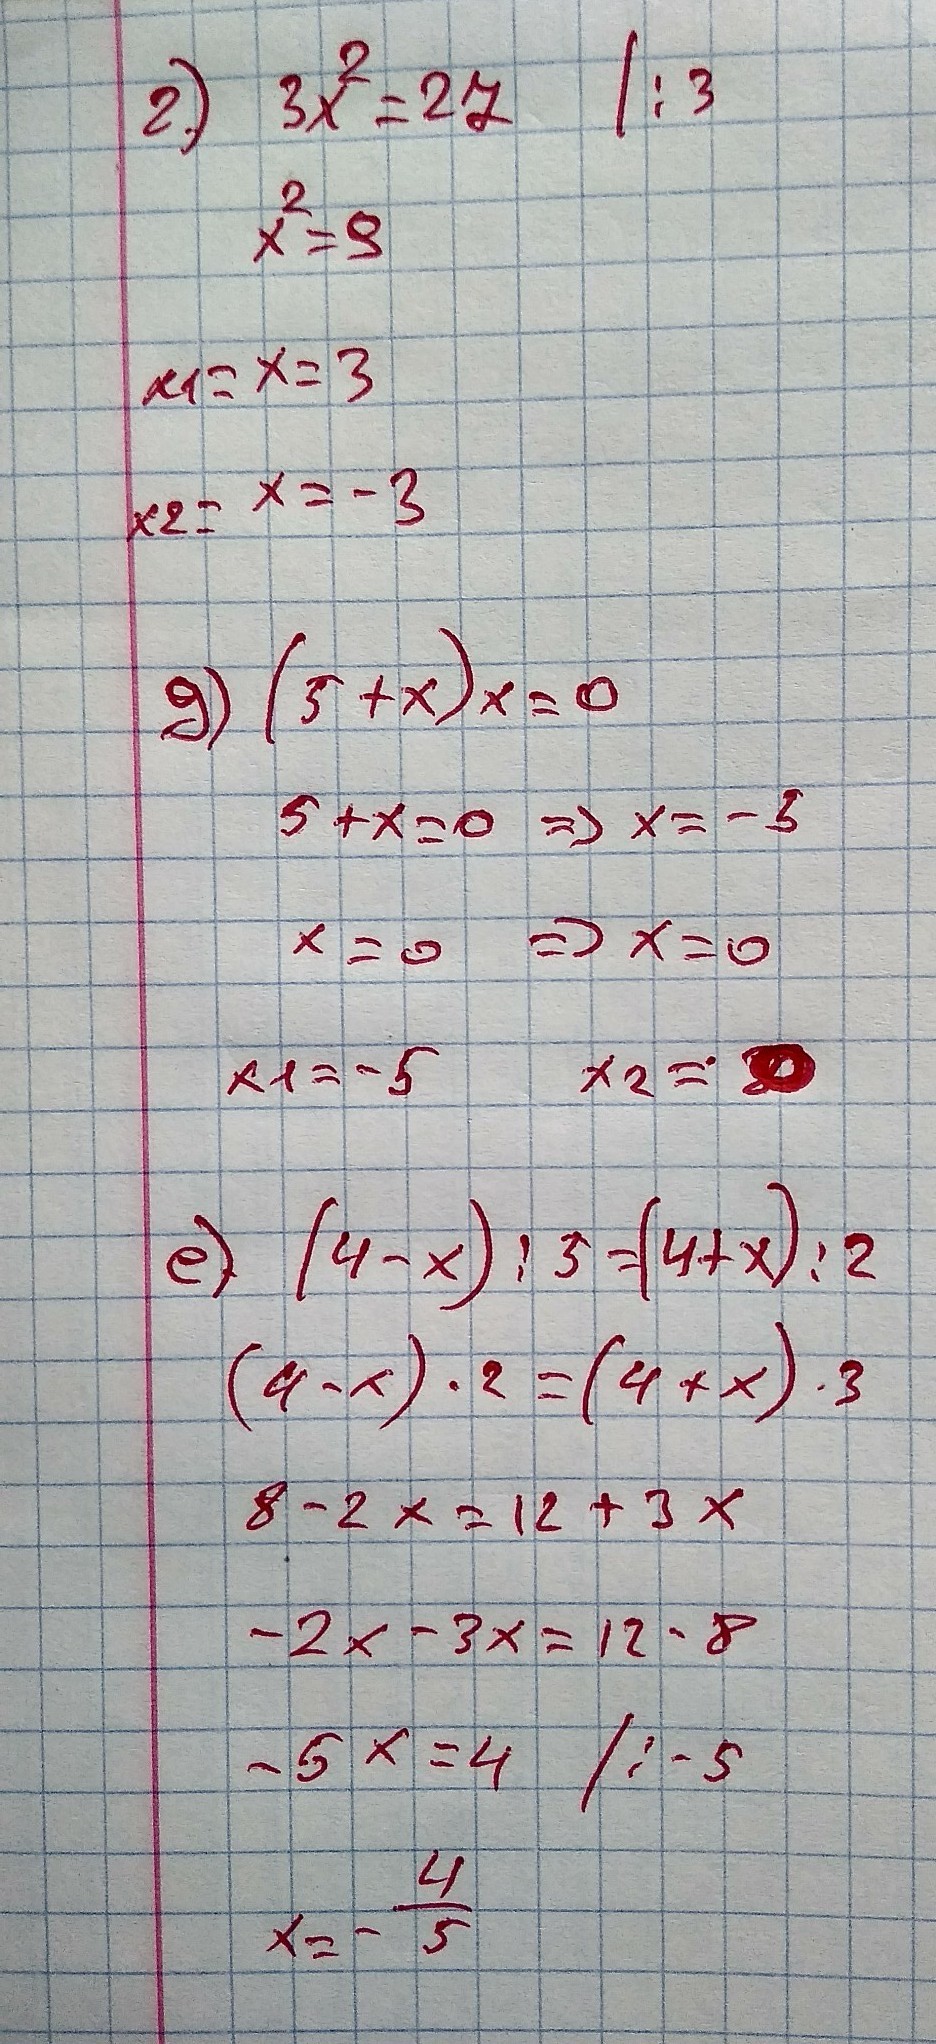 г) 3x²=27 /:3
x²=9
x1= x=3
x2= x=-3
д) (5+x)x=0
5+x=0 => x=-5
x=0 => x=0
x1=-5 x2=0
е) (4-x):3=(4+x):2
(4-x)·2=(4+x)·3
8-2x=12+3x
-2x-3x=12-8
-5x=4 /:-5
x=-4/5